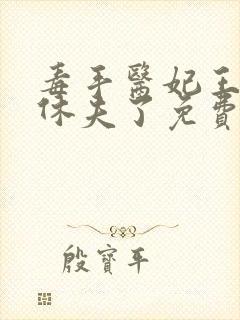 毒手醫妃王
休夫了免費
殷寶平